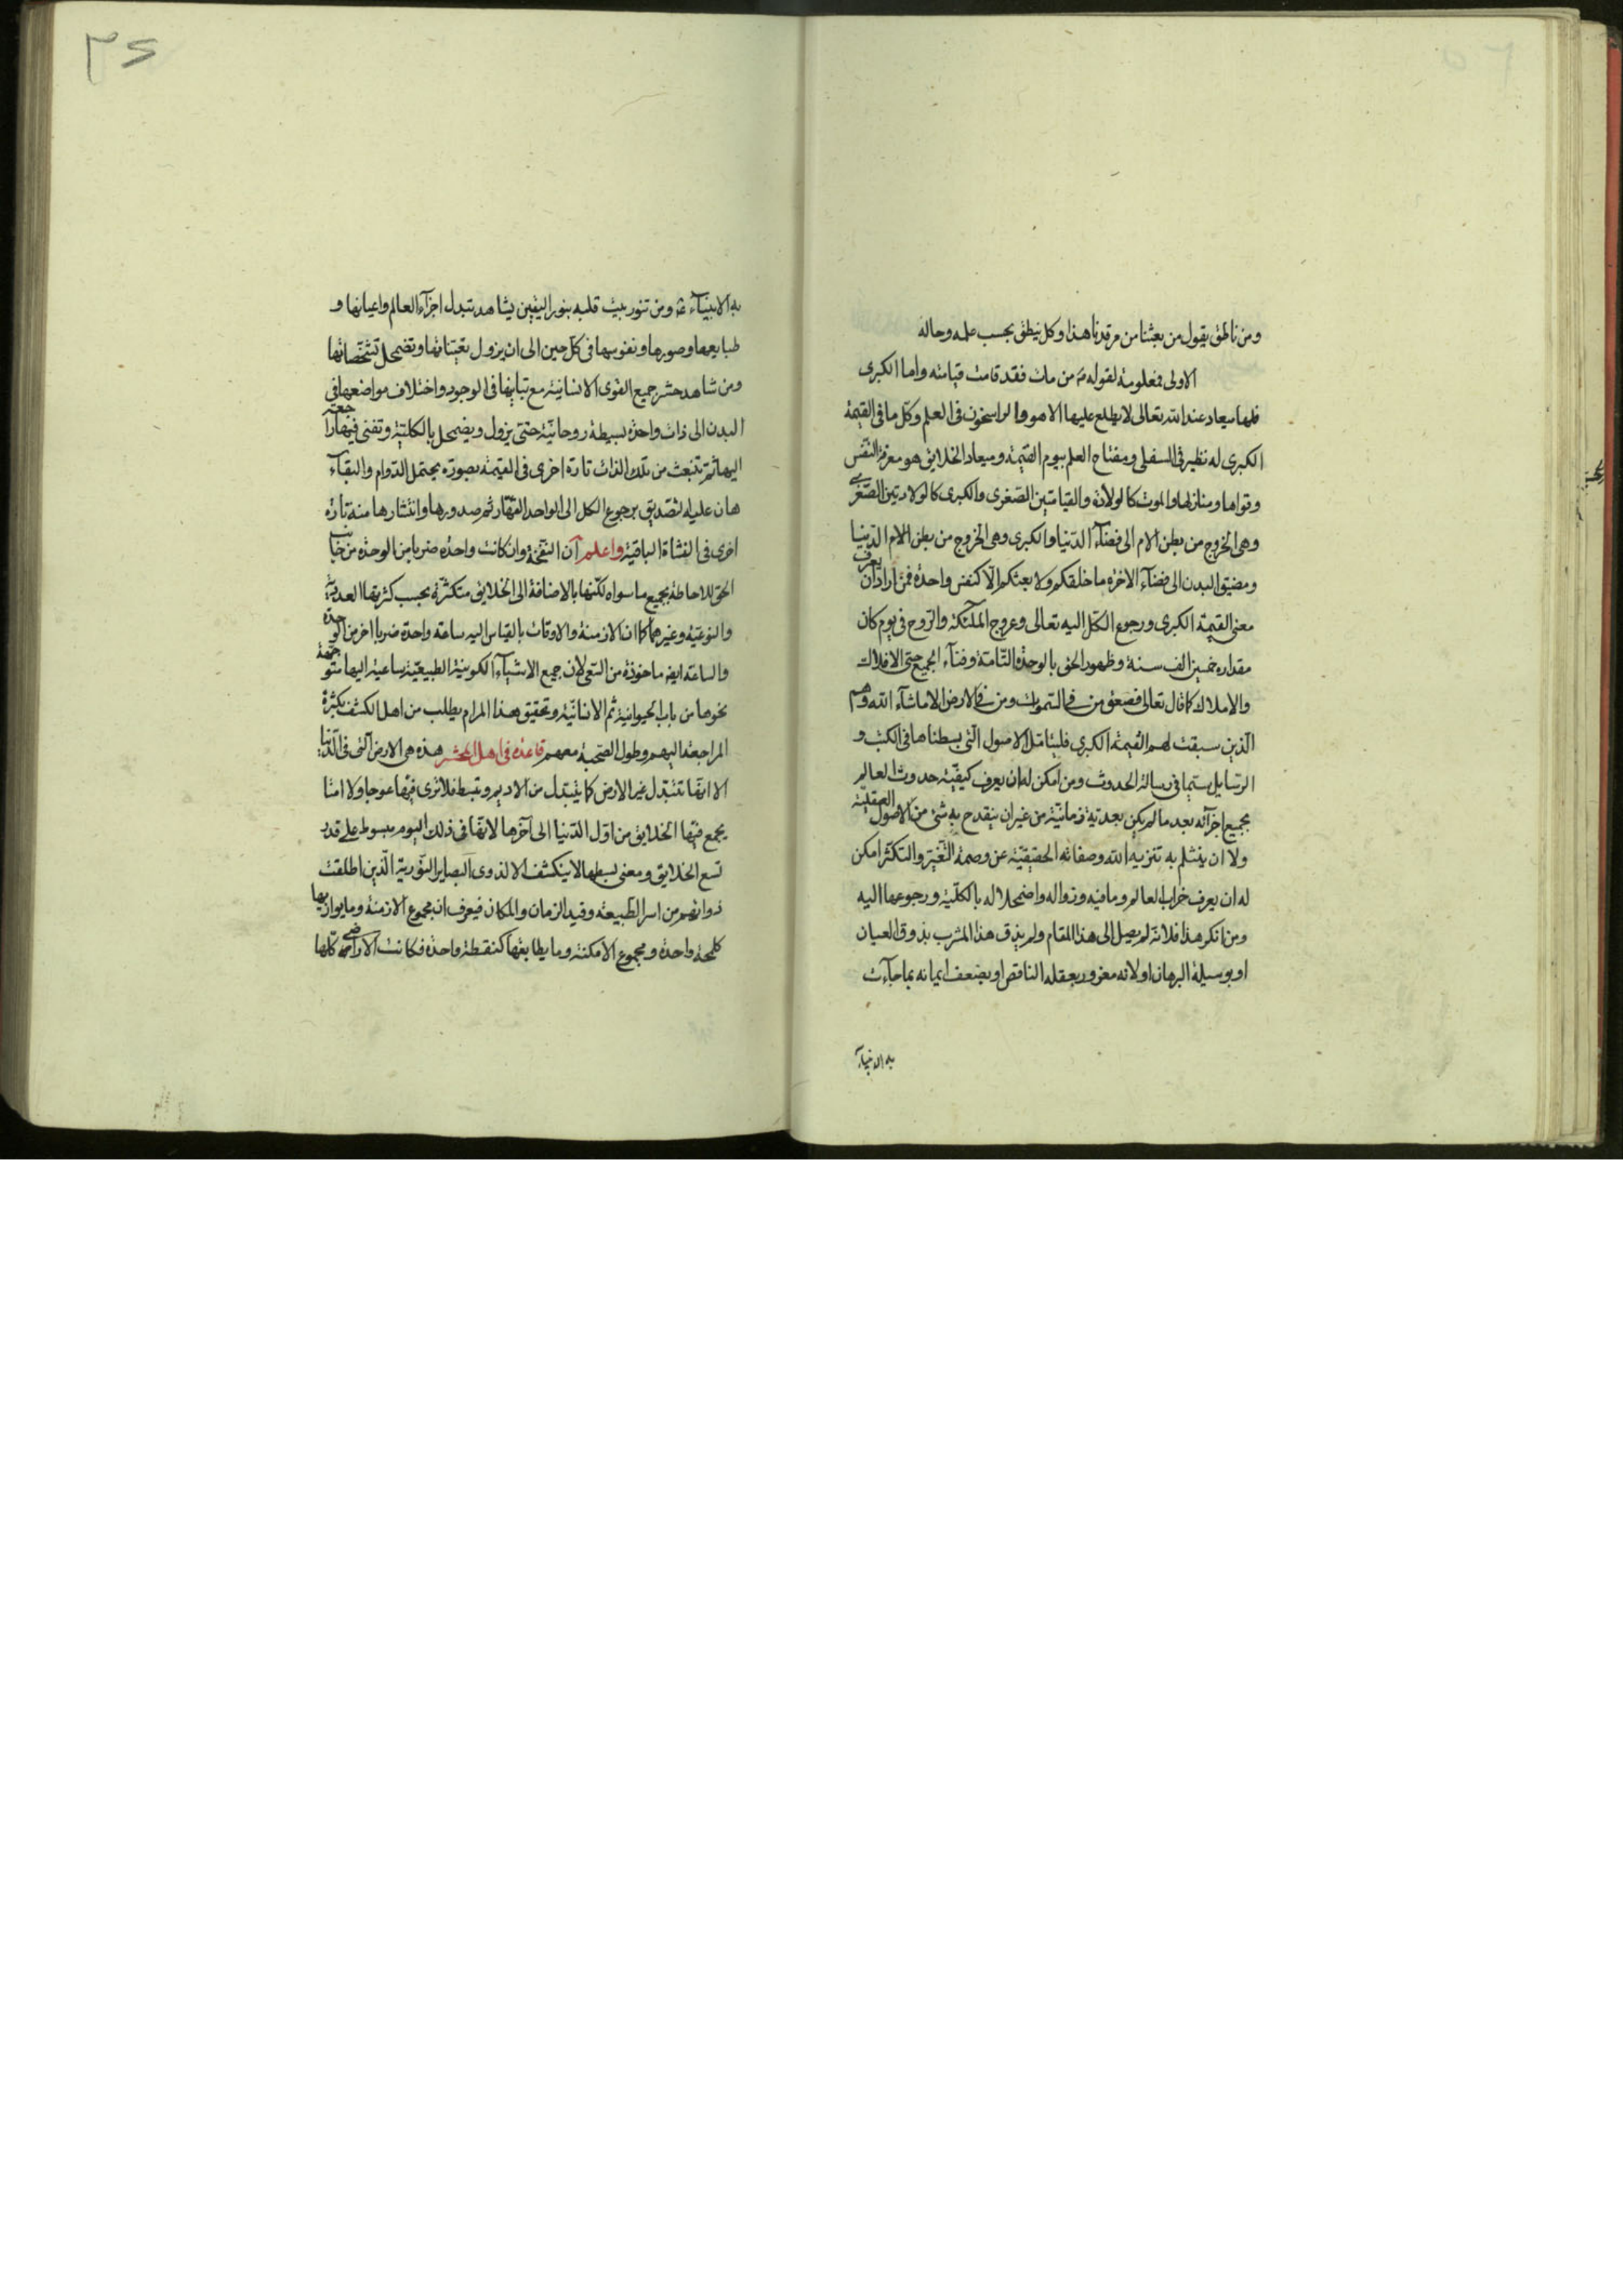 ومن ناطق يقول من بعثنا من مرقدنا هذا وكل ينطق بحسب علمه وحاله
الاولى فمعلومة لقوله ص من مات فقد قامت قيامته واما الكبرى
فلها ميعاد عند الله تعالى لا يطلع عليها الا هو والراسخون فى العلم وكل ما فى القيمة
الكبرى له نظير فى السفلى ومفتاح العلم بيوم القيمة وميعاد الخلايق هو معرفة النفس
وقواها ومنازلها والموت كالولادة والقيامتين الصغرى والكبرى كالولادتين الصغرى
وهى الخروج من بطن الام الى فضآء الدنيا والكبرى وهى الخروج من بطن الام الدنيا
ومضيق البدن الى فضآء الاخرة ما خلقكم ولا بعثكم الا كنفس واحدة فمن اراد ان يعرف
معنى القيمة الكبرى ورجوع الكل اليه تعالى وعروج الملئكة والروح فى يوم كان
مقداره خمسين الف سنة وظهور الحق بالوحدة التامة وفنآء الجميع حتى الافلاك
والاملاك كما قال تعالى فصعق من فى السموات ومن فى الارض الا ما شآء الله وهم
الذين سبقت لهم القيمة الكبرى فليتامل الاصول التى بسطناها فى الكتب و
الرسايل سيما فى رسالة الحدوث ومن امكن له ان يعرف كيفية حدوث العالم
بجميع اجزآئه بعد ما لم يكن بعدية زمانية من غير ان ينقدح به شئ من الاصول العقلية
ولا ان ينثلم به تنزيه الله وصفاته الحقيقية عن وصمة التغير والتكثر امكن
له ان يعرف خراب العالم وما فيه وزواله واضمحلاله بالكلية ورجوعها اليه
ومن انكر هذا فلانه لم يصل الى هذا المقام ولم يذق هذا المشرب بذوق العيان
او بوسيلة البرهان او لانه مغرور بعقله الناقص او بضعف ايمانه بما جآءت
به الانبيآء
٣٤
به الانبيآء ع ومن تنور بيت قلبه بنور اليقين يشاهد تبدل اجزآء العالم واعيانها و
طبايعها وصورها ونفوسها فى كل حين الى ان يزول تعيناتها وتضمحل تشخصاتها
ومن شاهد حشر جميع القوى الانسانية مع تباينها فى الوجود واختلاف مواضعها فى
البدن الى ذات واحدة بسيطة روحانية حتى يزول ويضمحل بالكلية وتفنى فيها راجعة
اليها ثم تنبعث من تلك الذات تارة اخرى فى القيمة بصورة يحتمل الدوام والبقآء
هان عليه التصديق برجوع الكل الى الواحد القهار ثم صدورها وانتشارها منه تارة
اخرى فى النشاة الباقية واعلم ان النفخة وان كانت واحدة ضربا من الوحدة من جناب
الحق للاحاطة بجميع ما سواه لكنها بالاضافة الى الخلايق متكثرة بحسب كثرتها العددية
والنوعية وغيرهما كما ان الازمنة والاوقات بالقياس اليه ساعة واحدة ضربا اخر من الوحدة
والساعة ايضا ماخوذة من السعى لان جميع الاشيآء الكونية الطبيعية ساعية اليها متوجهة
نحوها من باب الحيوانية ثم الانسانية وتحقيق هذا المرام يطلب من اهل الكشف بكثرة
المراجعة اليهم وطول الصحبة معهم قاعدة فى اهل المحشر هذه هى الارض التى فى الدنيا
الا انها تتبدل غير الارض كما يتبدل من الاديم وتبسط فلا ترى فيها عوجا ولا امتا
يجمع فيها الخلايق من اول الدنيا الى آخرها لانها فى ذلك اليوم مبسوط على قدر
تسع الخلايق ومعنى بسطها لا ينكشف الا لذوى البصاير النورية الذين اطلقت
ذواتهم من اسر الطبيعة وقيد الزمان والمكان فيعرف ان مجموع الازمنة وما يوازيها
كلمحة واحدة ومجموع الامكنة وما يطابقها كنقطة واحدة فكانت الاراضى كلها